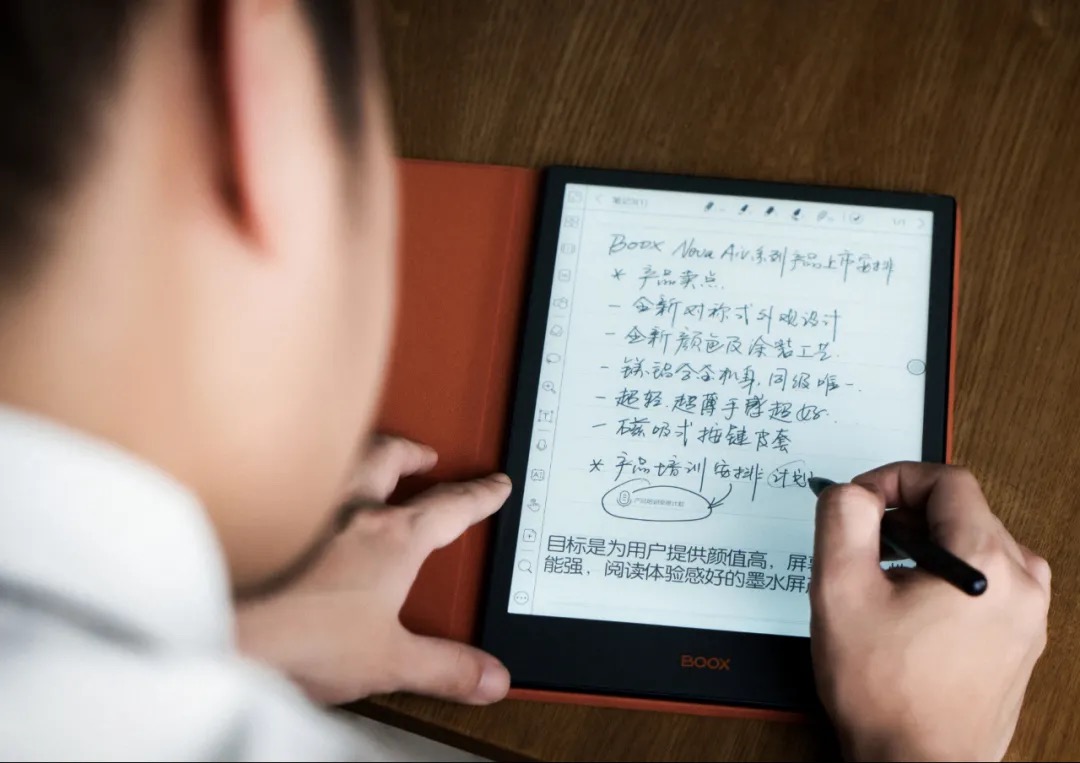 1/1
Boox Nova Air系列产品上市安排
* 产品卖点.
- 全新对称式外观设计
- 全新颜色及涂装工艺.
- 镁铝合金机身,同级唯一.
- 超轻.超薄手感超好.
- 磁吸式按键皮套
* 产品培训安排: 计划
目标是为用户提供颜值高，屏
能强，阅读体验感好的墨水屏
BOOX